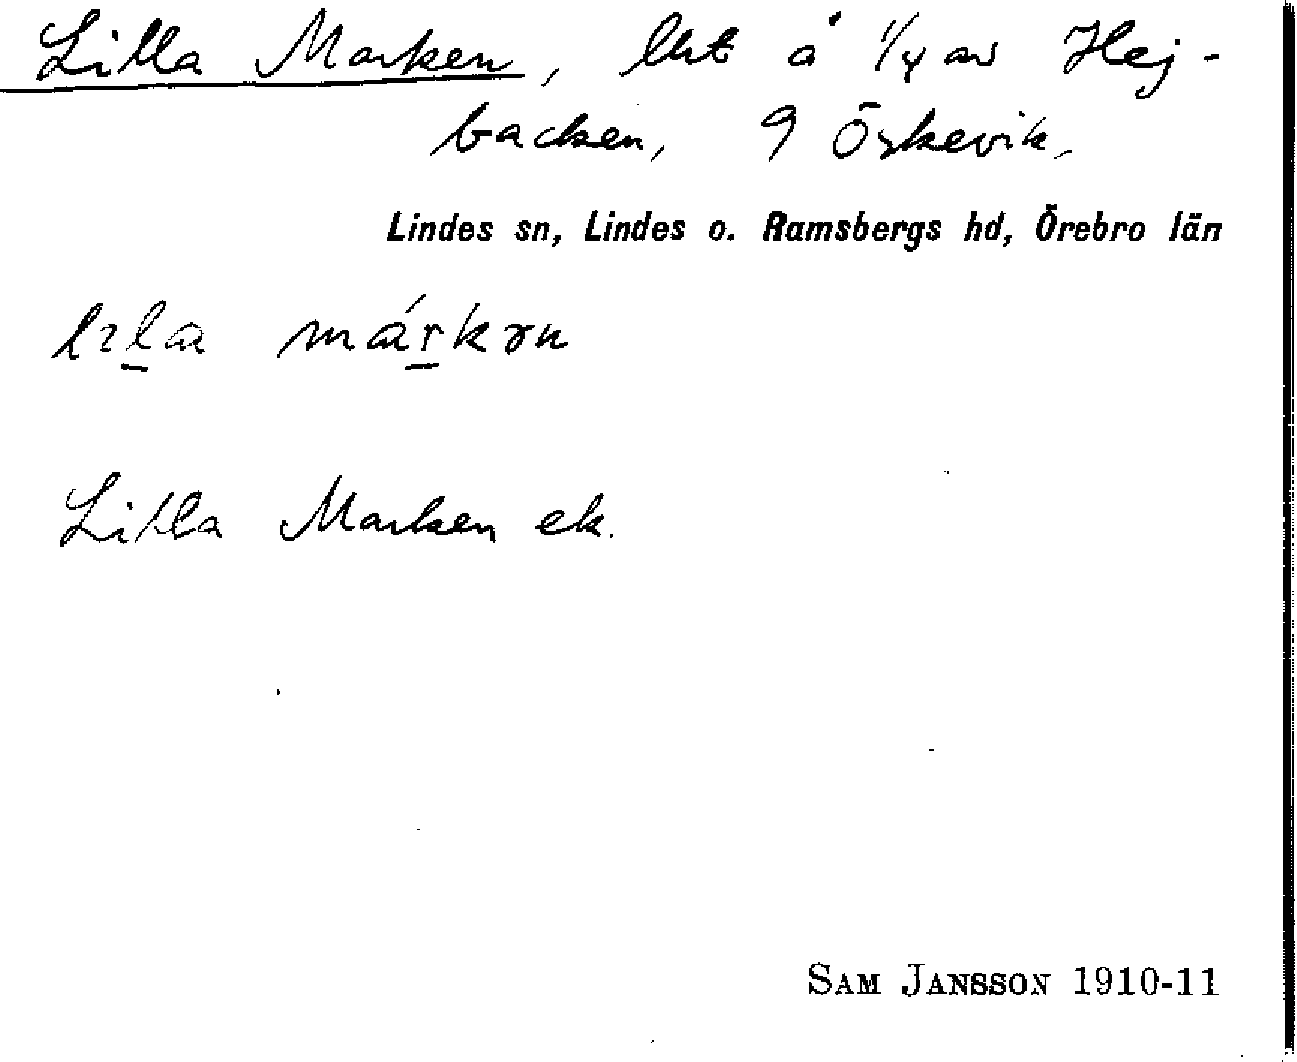 Lilla Marken, lht å 1/4 av Hej-
backen, 9 Öskevik,
Lindes sn, Lindes o. Ramsbergs hd, Örebro län
lıla márkən
Lilla Marken ek.
SAM JANSSON 1910-11